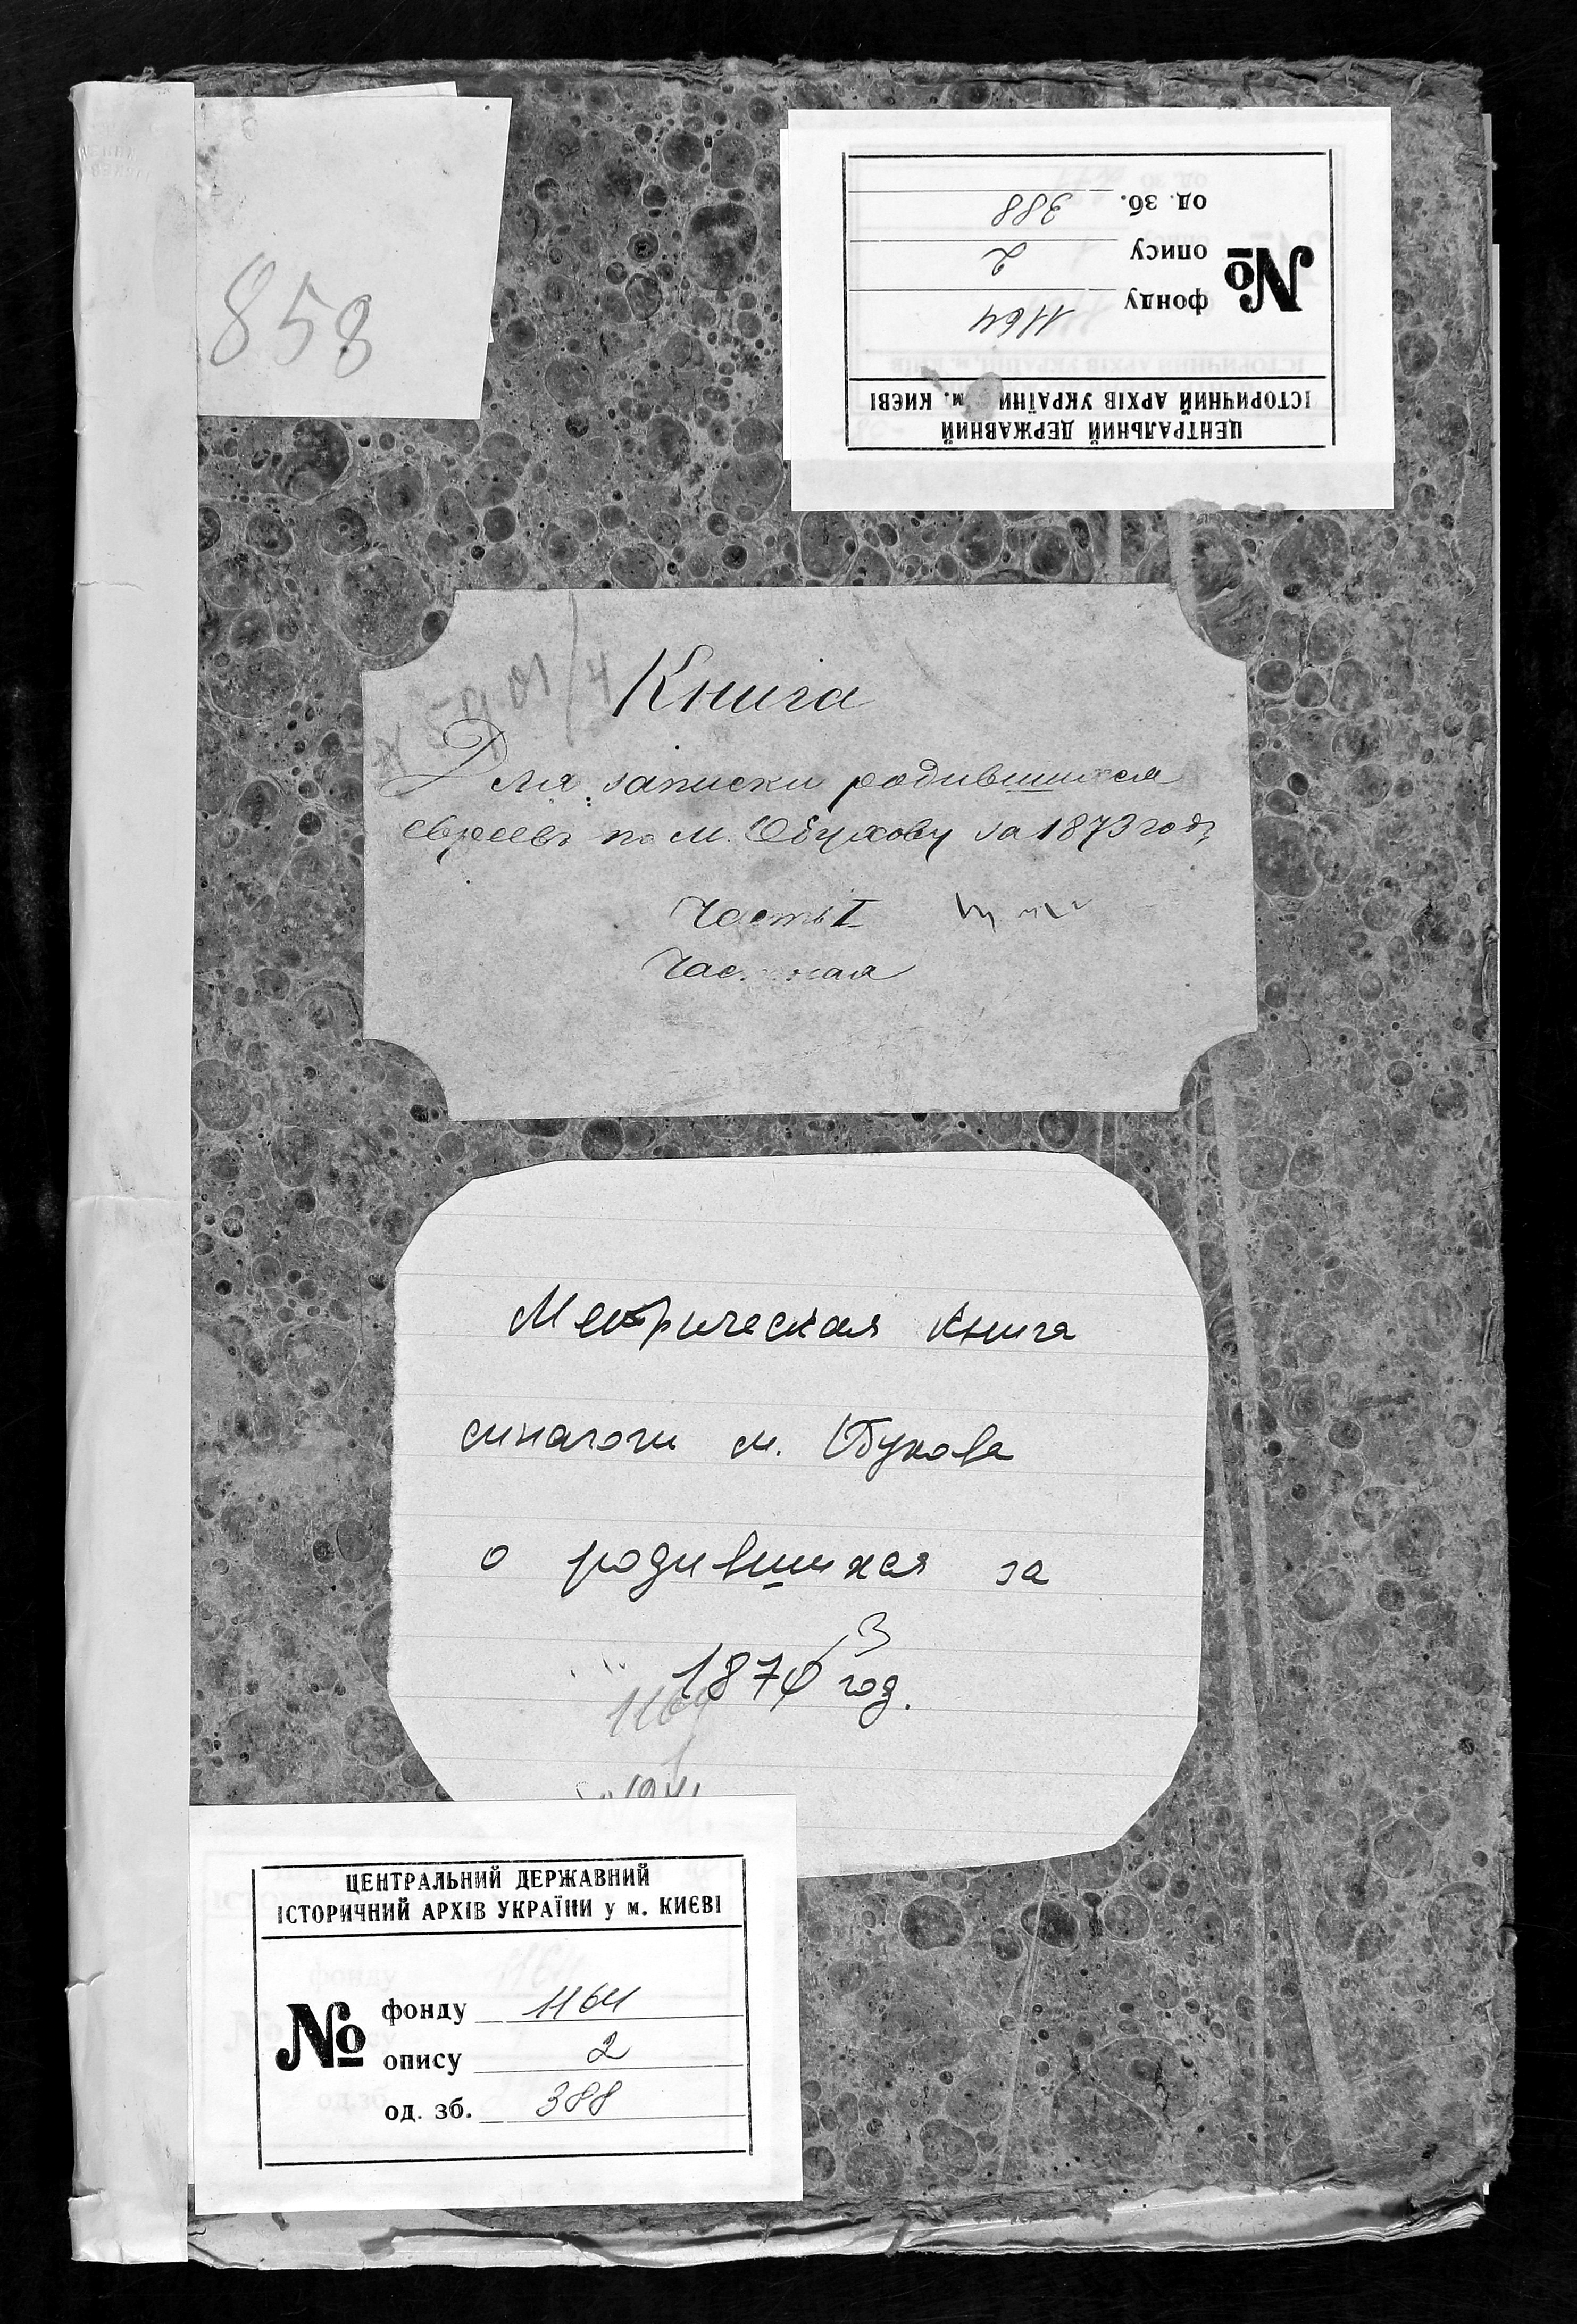 858
ЦЕНТРАЛЬНИЙ ДЕРЖАВНИЙ
ІСТОРИЧНИЙ АРХІВ УКРАЇНИ м. КИЄВІ
№
фонду 1164
опису 2
од. зб. 388
Книга
Для записки родившихся
евреевъ по м. Обухову за 1873 годъ
Часть I
Метрическая книга
синагоги м. Обухова
о родившихся за
1870 3 год.
1164
ЦЕНТРАЛЬНИЙ ДЕРЖАВНИЙ
ІСТОРИЧНИЙ АРХІВ УКРАЇНИ у м. КИЄВІ
№
фонду 1164
опису 2
од. зб. 388